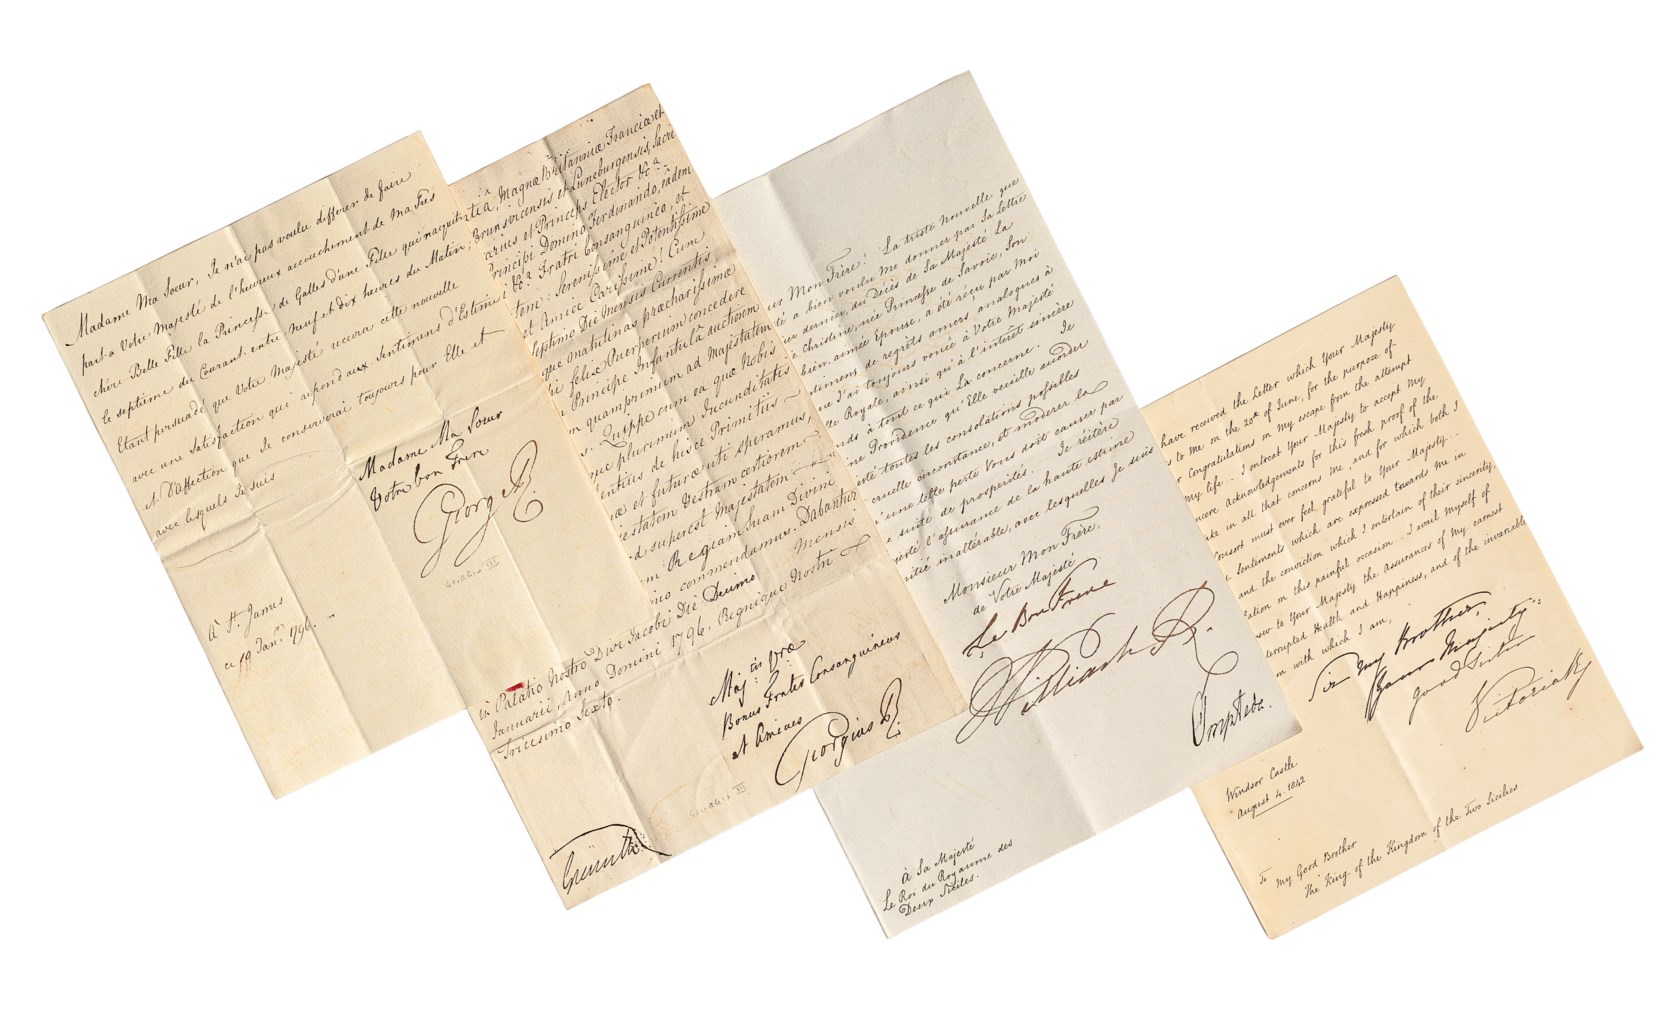 Madame Ma Soeur, Je n'ai pas voulu differer de faire
part a Votre Majesté de l'heureux accouchement de Ma Très
chère Belle Fille la Princesse de Galles d'une Fille qui naquit
le septième du Courant entre Neuf et Dix heures du Matin;
Etant persuadé que Votre Majesté recevra cette nouvelle
avec une Satisfaction qui répond aux Sentimens d'Estime
et D'affection que Je conserverai toujours pour Elle et
avec lesquels Je suis
Madame Ma Soeur
Votre bon Frere
George R.
George III
À St. James
ce 19 Janr. 1796.
Magnæ Britanniæ Franciæ et
Brunsvicensis et Luneburgensis, Sacri
arius et Princeps Elector &c.a
Principi Domino Ferdinando, eadem
&c.a Fratri Consanguineo, et
tem: Serenissime et Potentissime
et Amice Carissime! Cum
Septimo Die Mensis Currentis
que matutinas præcharissimæ
felix Puerperium concedere
Principe Infantula auctiorem
quamprimum ad Majestatem
Quippe cum ea quæ Nobis
que plurimum Jucunditatis
de hisce Primitiis
et futura uti speramus,
Majestatem Vestram certiorem
superest Majestatem
Regiam Suam Divini
commendamus. Dabantur
in Palatio Nostro Divi Jacobi Die Decimo Mensis
Januarii, Anno Domini 1796. Regnique Nostri
Tricesimo Sexto.
Maj:tis Vræ
Bonus Frater Consanguineus
et Amicus
Georgius R.
George III
Mon Frère! La triste Nouvelle que
a bien voulu Me donner par Sa Lettre
dernier, du Décès de Sa Majesté La
Christine, née Princesse de Savoie, Son
bien-aimée Epouse, a été reçue par Moi
timent de regrets amers, analogues à
que J'ai toujours voué à Votre Majesté
Royale, ainsi qu'à l'intérêt sincère
à tout ce qui La concerne. Je
Providence qu'Elle veuille accorder
toutes les consolations possibles
cruelle circonstance, et modérer la
qu'une telle perte Vous doit causer par
suite de prospérités. Je réitère
l'assurance de la haute estime
tié inaltérable, avec lesquelles Je suis
Monsieur Mon Frère,
de Votre Majesté
Le Bon Frère
William R.
Ompteda.
À Sa Majesté
Le Roi du Royaume des
Deux Siciles.
have received the Letter which Your Majesty
to Me on the 20th of June, for the purpose of
Congratulations on My escape from the attempt
my life. I intreat Your Majesty to accept My
sincere Acknowledgements for this fresh proof of the
take in all that concerns Me, and for which both I
Consort must ever feel grateful to Your Majesty.
Sentiments which are expressed towards Me in
and the conviction which I entertain of their sincerity,
lation on this painful occasion. I avail Myself of
to Your Majesty the Assurances of My earnest
terrupted Health and Happiness, and of the invariable
with which I am,
Sir My Brother,
Your Majesty's
good Sister
Victoria R
Windsor Castle
August 4. 1842
To My Good Brother
The King of the Kingdom of the Two Sicilies